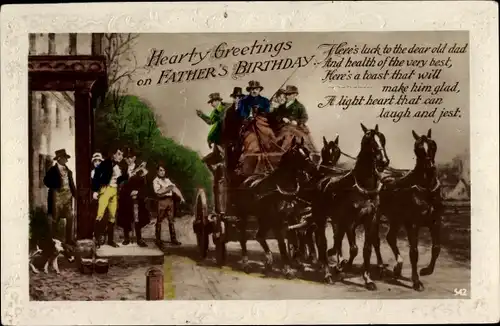 Hearty Greetings
on FATHER'S BIRTHDAY.
Here's luck to the dear old dad
And health of the very best,
Here's a toast that will
make him glad,
A light heart that can
laugh and jest.
542